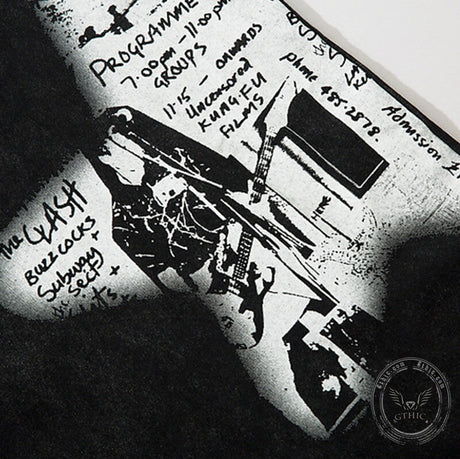 PROGRAMME
7:00pm - 11:00pm
GROUPS
11.15 - ONWARDS
Uncensored
KUNG-FU
FILMS
phone 485.2878.
Admission £1
The CLASH
BUZZCOCKS +
Subway
Sect +
GTHIC